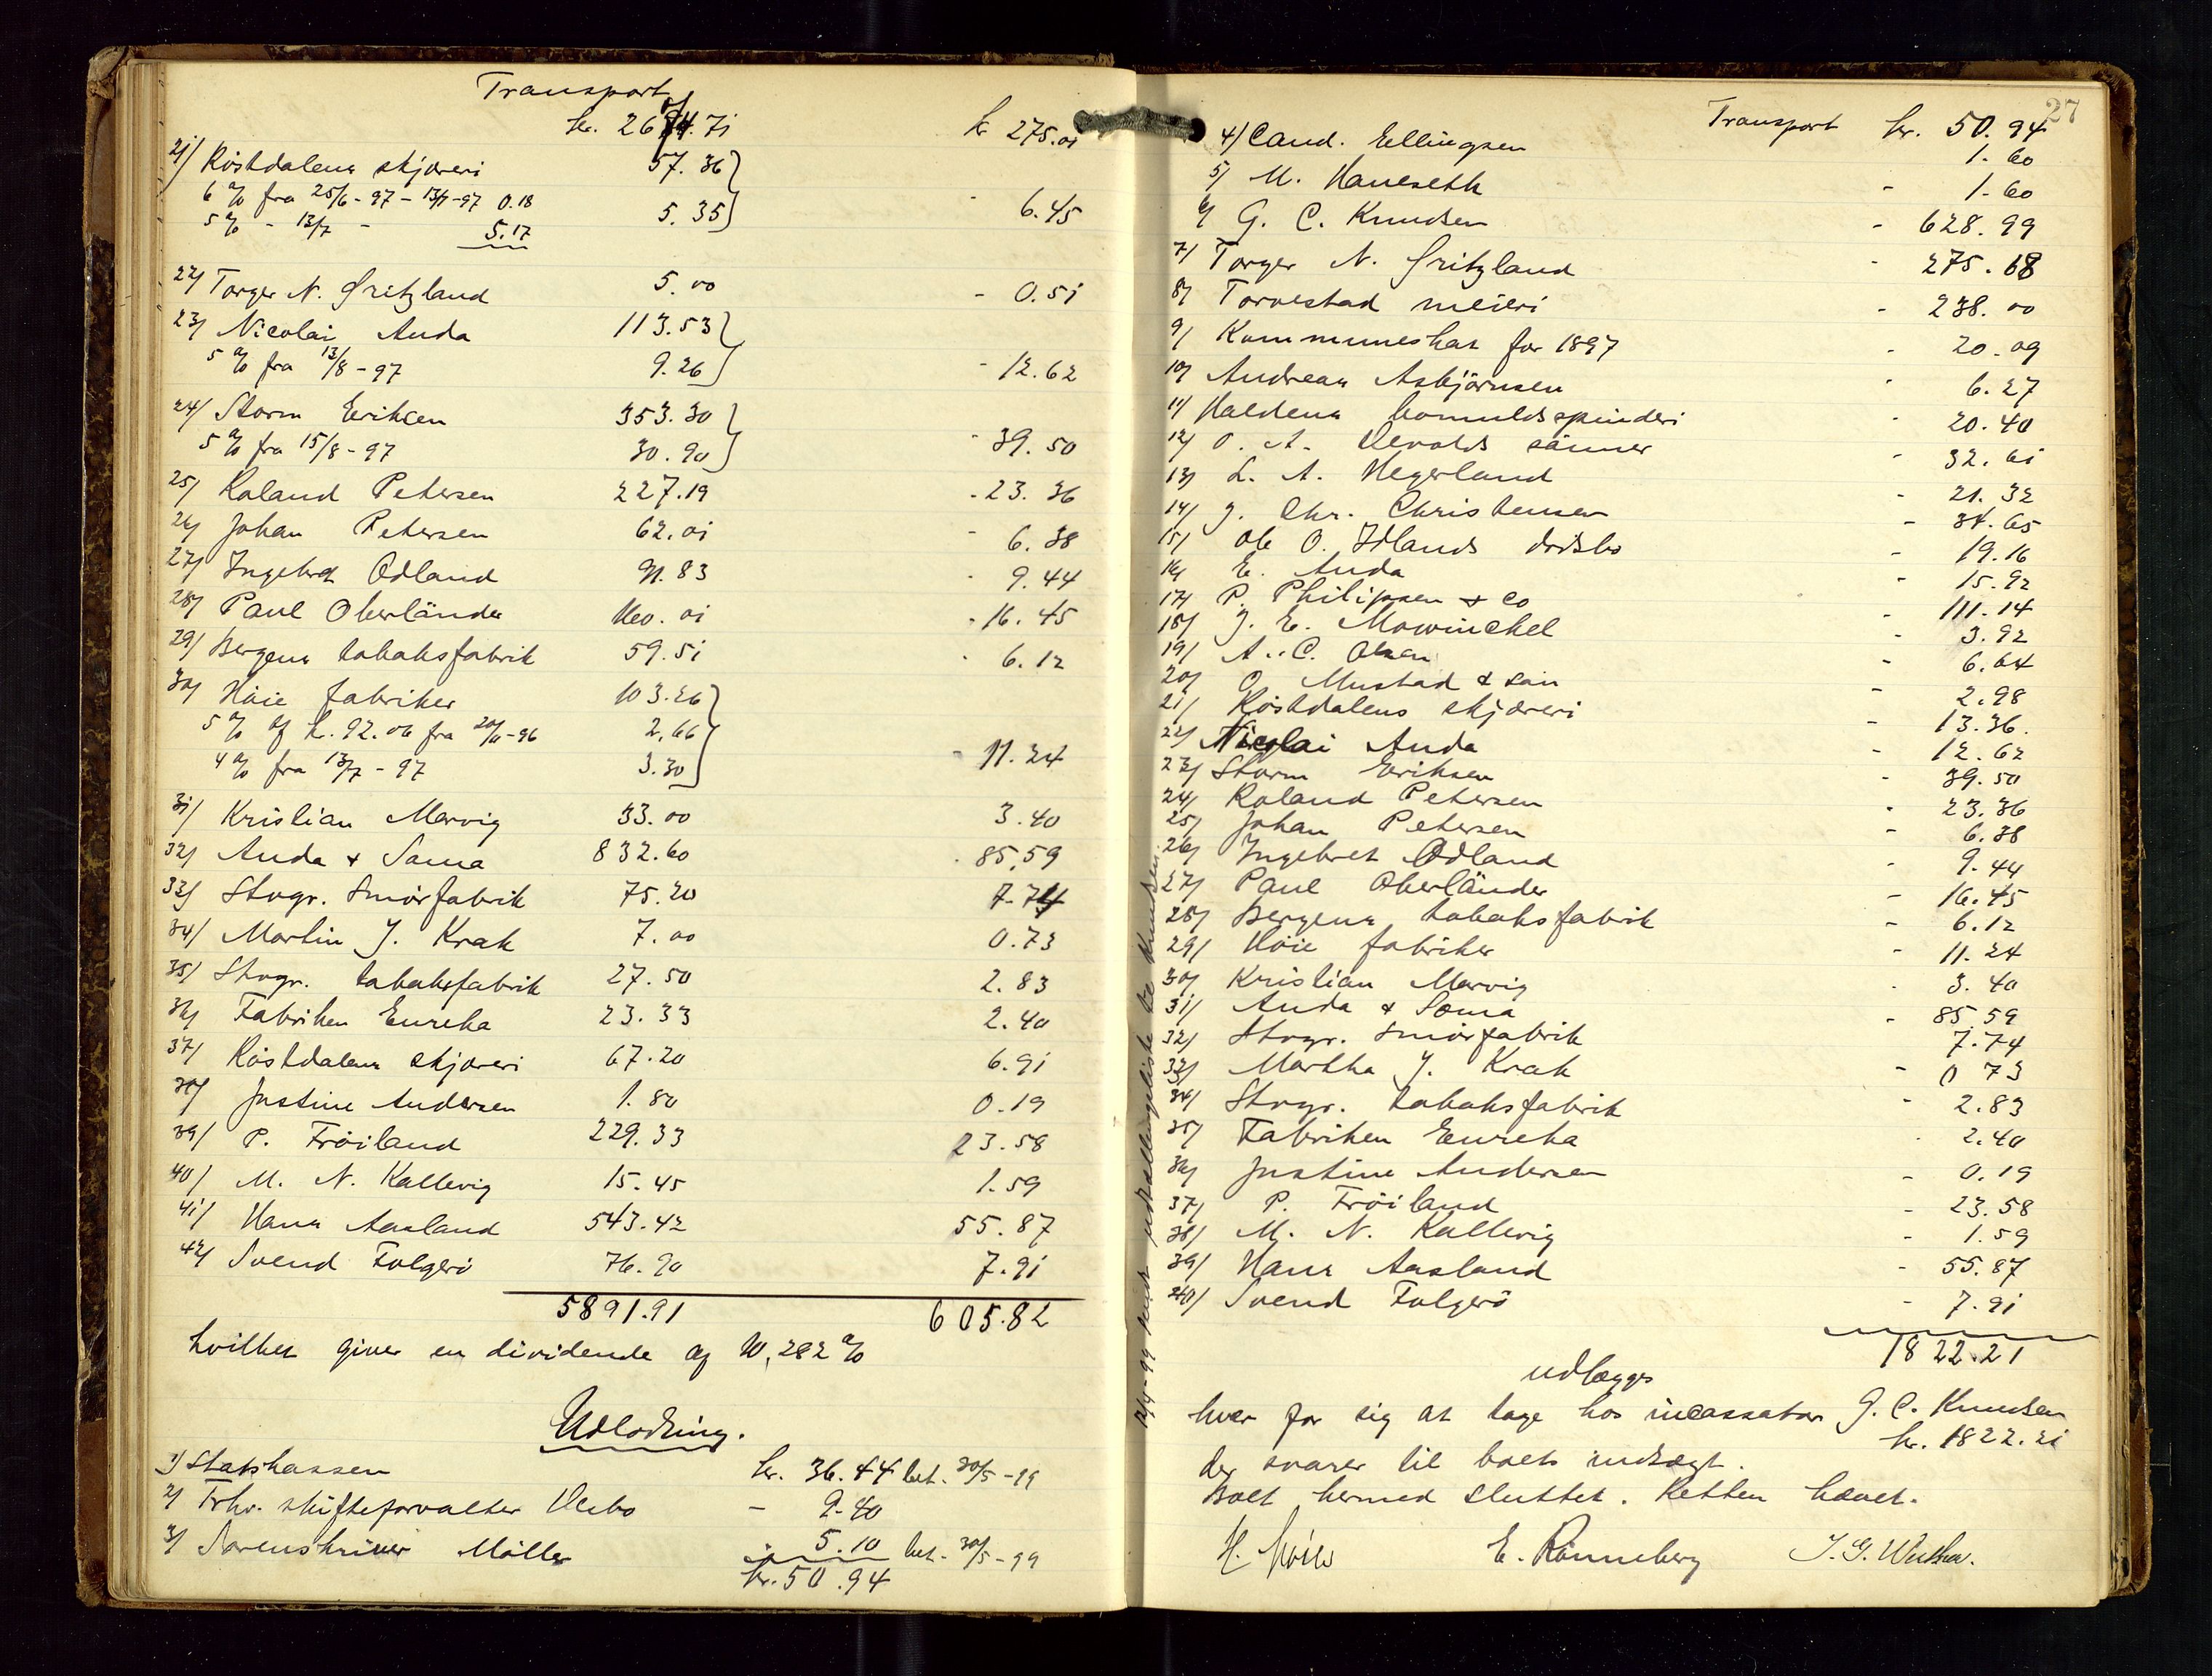 Transport
kr. 2674.71 kr 275.01
21/ Röstdalens skjæreri 57.36
6 % fra 25/6-97 - 13/7-97 0.18 5.35 - 6.45
5 % - 13/7 - 5.17
22/ Torger N. Gritzland 5.00 - 0.51
23/ Nicolai Anda 113.53
5 % fra 13/8-97 9.26 - 12.62
24/ Storm Eriksen 353.30
5 % fra 15/8-97 30.90 - 39.50
25/ Roland Petersen 227.19 - 23.36
26/ Johan Petersen 62.01 - 6.38
27/ Ingebret Ödland 91.83 - 9.44
28/ Paul Oberländer 160.01 - 16.45
29/ Bergens tobaksfabrik 59.51 - 6.12
30/ Höie fabriker 103.26
5 % af kr. 92.06 fra 20/11-96 2.66
4 % fra 13/7-97 3.30 - 11.24
31/ Kristian Mervig 33.00 3.40
32/ Anda & Soma 832.60 - 85.59
33/ Stvgr. Smörfabrik 75.20 7.74
34/ Martin J. Krak 7.00 0.73
35/ Stvgr. tobaksfabrik 27.50 2.83
36/ Fabriken Eureka 23.33 2.40
37/ Röstdalens skjæreri 67.20 6.91
38/ Justine Andersen 1.80 0.19
39/ P. Fröiland 229.33 23.58
40/ M. N. Kallevig 15.45 1.59
41/ Hans Aasland 543.42 55.87
42/ Svend Folgerö 76.90 7.91
5891.91 605.82
hvilket giver en dividende af 10,282 %
Udlodning.
1/ Statskassen kr. 36.44 bet. 30/5-99
2/ Frhv. skifteforvalter Vebo - 9.40
3/ Sorenskriver Möller - 5.10 bet. 30/5-99
kr. 50.94
27
Transport kr. 50.94
4/ Cand. Ellingsen 1.60
5/ M. Haneseth - 1.60
6/ G. C. Knudsen - 628.99
7/ Torger N. Gritzland - 275.68
8/ Torvestad meieri - 238.00
9/ Kommuneskat for 1897 - 20.09
10/ Andreas Asbjörnsen - 6.27
11/ Haldens bomuldsspinderi - 20.40
12/ O. A. Devolds sönner - 32.61
13/ L. A. Hegerland - 21.32
14/ J. Chr. Christensen - 34.65
15/ Ole O. Idlands dödsbo - 19.16
16/ E. Anda - 15.92
17/ P. Philipsen & Co - 111.14
18/ J. E. Mowinckel - 3.92
19/ A. C. Olsen - 6.64
20/ O. Mustad & sön - 2.98
21/ Röstdalens skjæreri - 13.36.
22/ Nicolai Anda - 12.62
23/ Storm Eriksen - 39.50
24/ Roland Petersen - 23.36
25/ Johan Petersen - 6.38
26/ Ingebret Ödland - 9.44
27/ Paul Oberländer - 16.45
28/ Bergens tobaksfabrik - 6.12
29/ Höie fabriker - 11.24
30/ Kristian Mervig - 3.40
31/ Anda & Soma - 85.59
32/ Stvgr. Smörfabrik 7.74
33/ Martha J. Krak - 0 73
34/ Stvgr. tobaksfabrik - 2.83
35/ Fabriken Eureka - 2.40
36/ Justine Andersen - 0.19
37/ P. Fröiland - 23.58
38/ M. N. Kallevig - 1.59
39/ Hans Aasland - 55.87
40/ Svend Folgerö - 7.91
1822.21
udlægges
hver for sig at tage hos incassator G. C. Knudsen
kr. 1822.21
der svarer til boets indtægt.
Boet hermed sluttet. Retten hævet.
E. Rönneberg